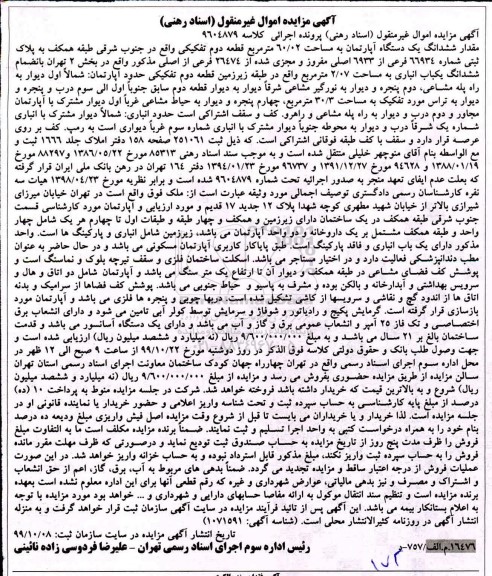 آگهی مزایده اموال غیرمنقول (اسناد رهنی)
آگهی مزایده اموال غیرمنقول (اسناد رهنی) پرونده اجرائی کلاسه ۹۶۰۴۸۷۹
مقدار ششدانگ یک دستگاه آپارتمان به مساحت ۶۰/۰۲ مترمربع قطعه دوم تفکیکی واقع در جنوب شرقی طبقه همکف به پلاک
ثبتی شماره ۶۶۹۳۴ فرعی از ۶۹۳۳ اصلی مفروز و مجزی شده از ۲۶۴۷۴ فرعی از اصلی مذکور واقع در بخش ۲ تهران بانضمام
ششدانگ یکباب انباری به مساحت ۲/۰۷ مترمربع واقع در طبقه زیرزمین قطعه دوم تفکیکی حدود آپارتمان: شمالاً اول دیوار به
راه پله مشاعی، دوم پنجره و دیوار به نورگیر مشاعی شرقاً دیوار به دیوار قطعه دوم سابق جنوباً اول الی سوم درب و پنجره و
دیوار به تراس مورد تفکیک به مساحت ۳۰/۳ مترمربع، چهارم پنجره و دیوار به حیاط مشاعی غرباً اول دیوار مشترک با آپارتمان
مجاور و دوم درب و دیوار به راه پله مشاعی و راهرو. کف و سقف اشتراکی است حدود انباری: شمالاً دیوار مشترک با انباری
شماره یک شرقاً درب و دیوار به محوطه جنوباً دیوار مشترک با انباری شماره سوم غرباً دیواری است به رمپ. کف بر روی
عرصه قرار دارد و سقف با کف طبقه فوقانی اشتراکی است. که ذیل ثبت ۲۵۱۰۶۱ صفحه ۱۵۸ دفتر املاک جلد ۱۶۶۶ ثبت و
مع الواسطه بنام آقای منوچهر خلیلی منتقل شده است و به موجب سند اسناد رهنی ۸۵۳۱۳ مورخ ۱۳۸۶/۰۵/۲۲ و ۸۸۲۹۷ مورخ
۱۳۸۸/۰۱/۱۹ و ۹۴۶۷۸ مورخ ۱۳۹۱/۱۲/۲۷ و ۹۶۷۳۷ مورخ ۱۳۹۴/۰۱/۲۳ دفتر ۱۶۴ تهران در رهن بانک ملی ایران قرار گرفته
که بعلت عدم ایفای تعهد منجر به صدور اجرائیه تحت شماره ۹۶۰۴۸۷۹ شده است و برابر نظریه مورخ ۱۳۹۸/۰۴/۲۳ هیات سه
نفره کارشناسان رسمی دادگستری توصیف اجمالی مورد وثیقه عبارت است از: ملک فوق واقع است در تهران خیابان میرزای
شیرازی بالاتر از خیابان شهید مطهری کوچه شهدا پلاک ۱۲ جدید ۱۷ قدیم و مورد ارزیابی و آپارتمان مورد کارشناسی قسمت
جنوب شرقی طبقه همکف در یک ساختمان دارای زیرزمین و همکف و چهار طبقه و طبقات اول تا چهارم هر یک شامل چهار
واحد و طبقه همکف مشتمل بر یک داروخانه و دو واحد آپارتمان می باشد، زیرزمین شامل انباری و پارکینگ ها است. واحد
مذکور دارای یک باب انباری و فاقد پارکینگ است. طبق پایانکار کاربری آپارتمان مسکونی می باشد و در حال حاضر به عنوان
مطب دندانپزشکی فعالیت دارد و در اختیار مستاجر می باشد. اسکلت ساختمان فلزی و سقف تیرچه بلوک و نماسنگ است و
پوشش کف فضای مشاعی در طبقه همکف و دیوار آن تا ارتفاع یک متر سنگ می باشد و آپارتمان شامل دو اتاق و هال و
سرویس بهداشتی و آبدارخانه و بالکن بوده و مشرف به پاسیو و حیاط جنوبی می باشد. پوشش کف فضاها از سرامیک و بدنه
اتاق ها از اندود گچ و نقاشی و سرویسها از کاشی تشکیل شده است. دربها چوبی و پنجره ها فلزی می باشد و آپارتمان مورد
بازسازی قرار گرفته است. گرمایش پکیج و رادیاتور و شوفاژ و سرمایش توسط کولر آبی تامین می شود و دارای انشعاب برق
اختصاصی و تک فاز ۲۵ آمپر و انشعاب عمومی برق و گاز و آب می باشد و دارای یک دستگاه آسانسور می باشد و قدمت
ساختمان بالغ بر ۲۱ سال می باشد و به مبلغ ۹/۶۰۰/۰۰۰/۰۰۰ ریال (نه میلیارد و ششصد میلیون ریال) ارزیابی شده است و
جهت وصول طلب بانک و حقوق دولتی کلاسه فوق الذکر در روز دوشنبه مورخ ۹۹/۱۰/۲۲ از ساعت ۹ صبح الی ۱۲ ظهر در
محل اداره سوم اجرای اسناد رسمی واقع در تهران چهارراه جهان کودک ساختمان معاونت اجرای اسناد رسمی استان تهران
سالن مزایده از طریق مزایده حضوری بفروش می رسد و مزایده از مبلغ ۹/۶۰۰/۰۰۰/۰۰۰ ریال (نه میلیارد و ششصد میلیون
ریال) شروع و به بالاترین قیمت که خریدار داشته باشد فروخته خواهد شد. شرکت در جلسه مزایده منوط به پرداخت ۱۰ (ده)
درصد از مبلغ پایه کارشناسی به حساب سپرده ثبت و تحت شناسه واریز اعلامی و حضور خریدار یا نماینده قانونی او در
جلسه مزایده است. لذا خریدار و یا خریداران می بایست تا قبل از شروع وقت مزایده اصل فیش واریزی مبلغ ودیعه ده درصد
بنام خود را به همراه درخواست کتبی به واحد اجرا تسلیم و ثبت نمایند. ضمناً برنده مزایده مکلف است ما به التفاوت مبلغ
فروش را ظرف مدت پنج روز از تاریخ مزایده به حساب صندوق ثبت تودیع نماید و درصورتی که ظرف مهلت مقرر مانده
فروش را به حساب سپرده ثبت واریز نکند، مبلغ مذکور قابل استرداد نبوده و به حساب خزانه واریز خواهد شد. در این صورت
عملیات فروش از درجه اعتبار ساقط و مزایده تجدید می گردد. ضمناً بدهی های مربوط به آب، برق، گاز، اعم از حق انشعاب
و اشتراک و مصرف و نیز بدهی مالیاتی، عوارض شهرداری و غیره که رقم قطعی آنها برای این اداره معلوم نشده است بعهده
برنده مزایده است و تنظیم سند انتقال موکول به ارائه مفاصا حسابهای دارایی و شهرداری و ... خواهد بود مورد مزایده با توجه
به اعلام بستانکار بیمه می باشد. این آگهی پس از تائید فرآیند مزایده در سایت آگهی سازمان ثبت قرار خواهد گرفت و به منزله
انتشار آگهی در روزنامه کثیرالانتشار محلی است. (شناسه آگهی: ۱۰۷۱۵۹۱)
تاریخ انتشار آگهی مزایده در سایت سازمان ثبت: ۹۹/۱۰/۰۸
رئیس اداره سوم اجرای اسناد رسمی تهران - علیرضا فردوسی زاده نائینی
۱۶۴۷۶/م.الف/۷۵۷-د